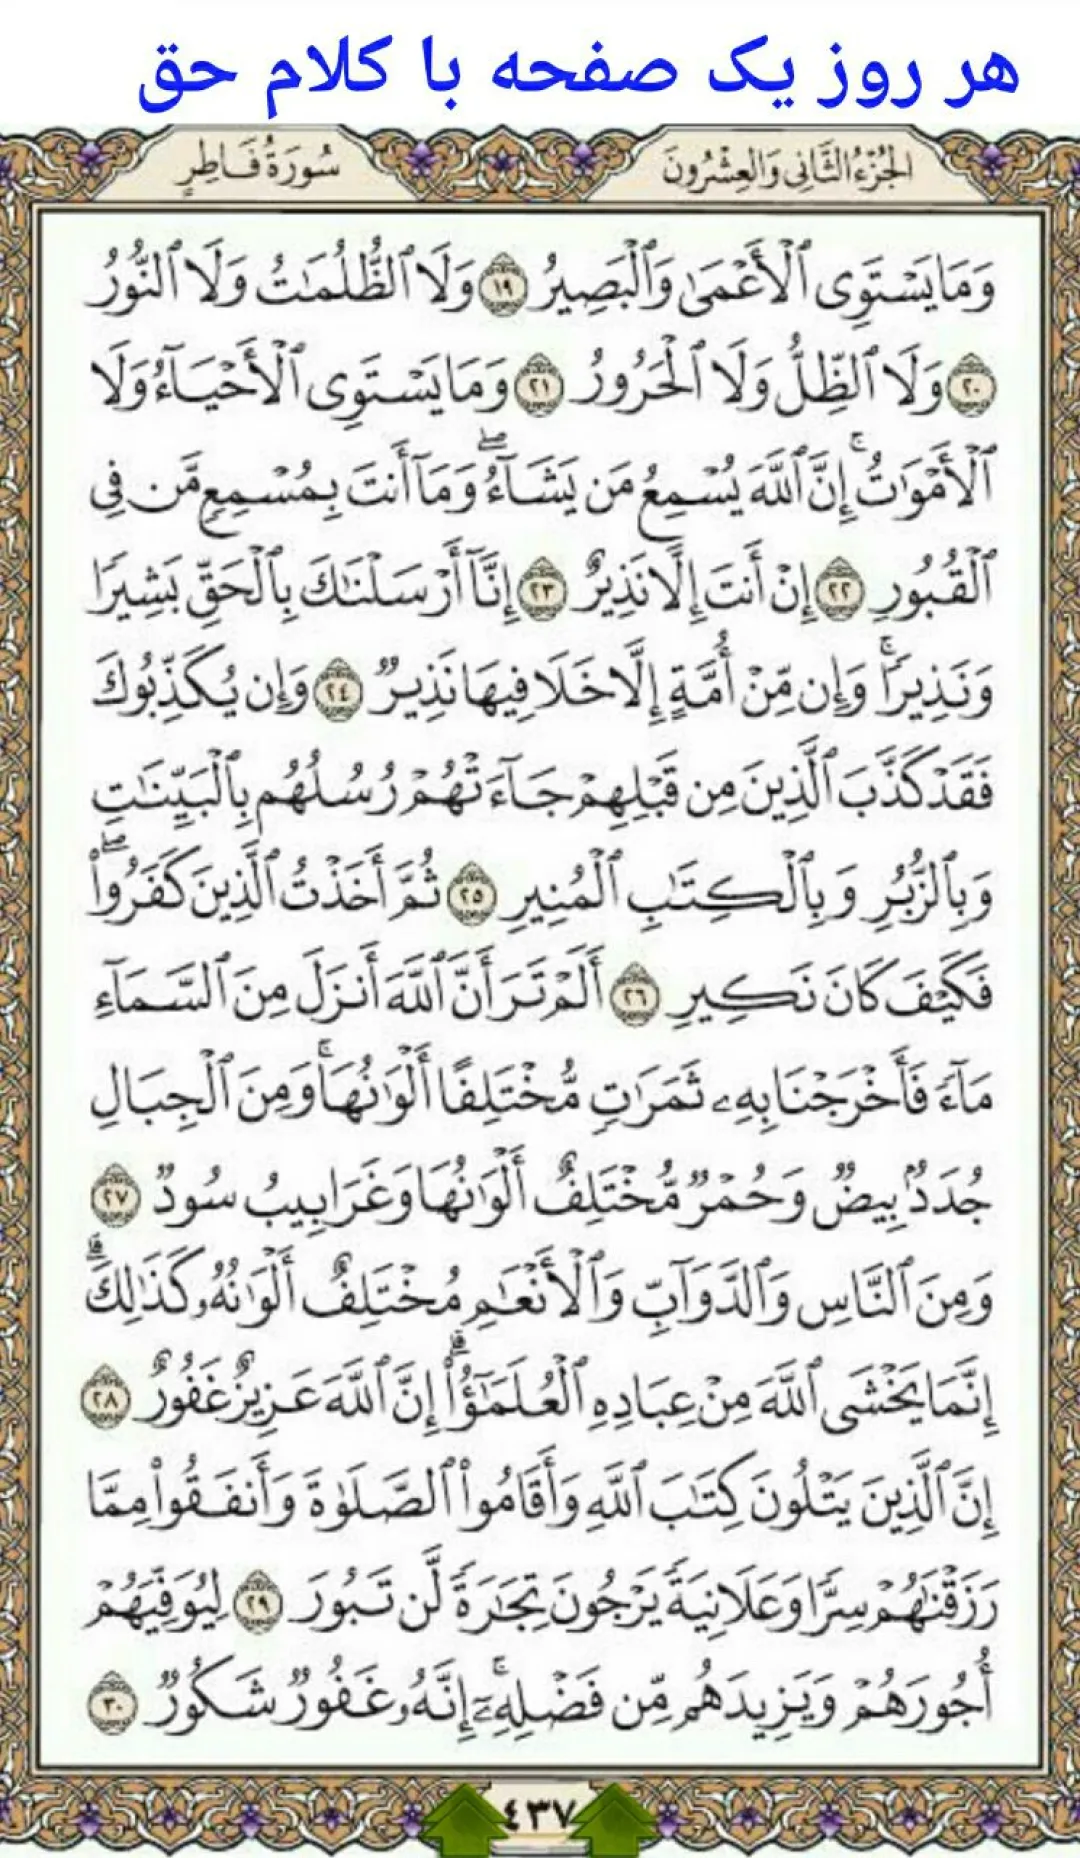 هر روز یک صفحه با کلام حق
الجُزْءُ الثَّانِي وَالعِشْرُونَ
سُورَةُ فَاطِرٍ
وَمَا يَسْتَوِى ٱلْأَعْمَىٰ وَٱلْبَصِيرُ ١٩ وَلَا ٱلظُّلُمَٰتُ وَلَا ٱلنُّورُ
٢٠ وَلَا ٱلظِّلُّ وَلَا ٱلْحَرُورُ ٢١ وَمَا يَسْتَوِى ٱلْأَحْيَآءُ وَلَا
ٱلْأَمْوَٰتُ ۚ إِنَّ ٱللَّهَ يُسْمِعُ مَن يَشَآءُ ۖ وَمَآ أَنتَ بِمُسْمِعٍ مَّن فِى
ٱلْقُبُورِ ٢٢ إِنْ أَنتَ إِلَّا نَذِيرٌ ٢٣ إِنَّآ أَرْسَلْنَٰكَ بِٱلْحَقِّ بَشِيرًا
وَنَذِيرًا ۚ وَإِن مِّنْ أُمَّةٍ إِلَّا خَلَا فِيهَا نَذِيرٌ ٢٤ وَإِن يُكَذِّبُوكَ
فَقَدْ كَذَّبَ ٱلَّذِينَ مِن قَبْلِهِمْ جَآءَتْهُمْ رُسُلُهُم بِٱلْبَيِّنَٰتِ
وَبِٱلزُّبُرِ وَبِٱلْكِتَٰبِ ٱلْمُنِيرِ ٢٥ ثُمَّ أَخَذْتُ ٱلَّذِينَ كَفَرُوا۟ ۖ
فَكَيْفَ كَانَ نَكِيرِ ٢٦ أَلَمْ تَرَ أَنَّ ٱللَّهَ أَنزَلَ مِنَ ٱلسَّمَآءِ
مَآءً فَأَخْرَجْنَا بِهِۦ ثَمَرَٰتٍ مُّخْتَلِفًا أَلْوَٰنُهَا ۚ وَمِنَ ٱلْجِبَالِ
جُدَدٌۢ بِيضٌ وَحُمْرٌ مُّخْتَلِفٌ أَلْوَٰنُهَا وَغَرَابِيبُ سُودٌ ٢٧
وَمِنَ ٱلنَّاسِ وَٱلدَّوَآبِّ وَٱلْأَنْعَٰمِ مُخْتَلِفٌ أَلْوَٰنُهُۥ كَذَٰلِكَ ۗ
إِنَّمَا يَخْشَى ٱللَّهَ مِنْ عِبَادِهِ ٱلْعُلَمَٰٓؤُا۟ ۗ إِنَّ ٱللَّهَ عَزِيزٌ غَفُورٌ ٢٨
إِنَّ ٱلَّذِينَ يَتْلُونَ كِتَٰبَ ٱللَّهِ وَأَقَامُوا۟ ٱلصَّلَوٰةَ وَأَنفَقُوا۟ مِمَّا
رَزَقْنَٰهُمْ سِرًّا وَعَلَانِيَةً يَرْجُونَ تِجَٰرَةً لَّن تَبُورَ ٢٩ لِيُوَفِّيَهُمْ
أُجُورَهُمْ وَيَزِيدَهُم مِّن فَضْلِهِۦٓ ۚ إِنَّهُۥ غَفُورٌ شَكُورٌ ٣٠
٤٣٧